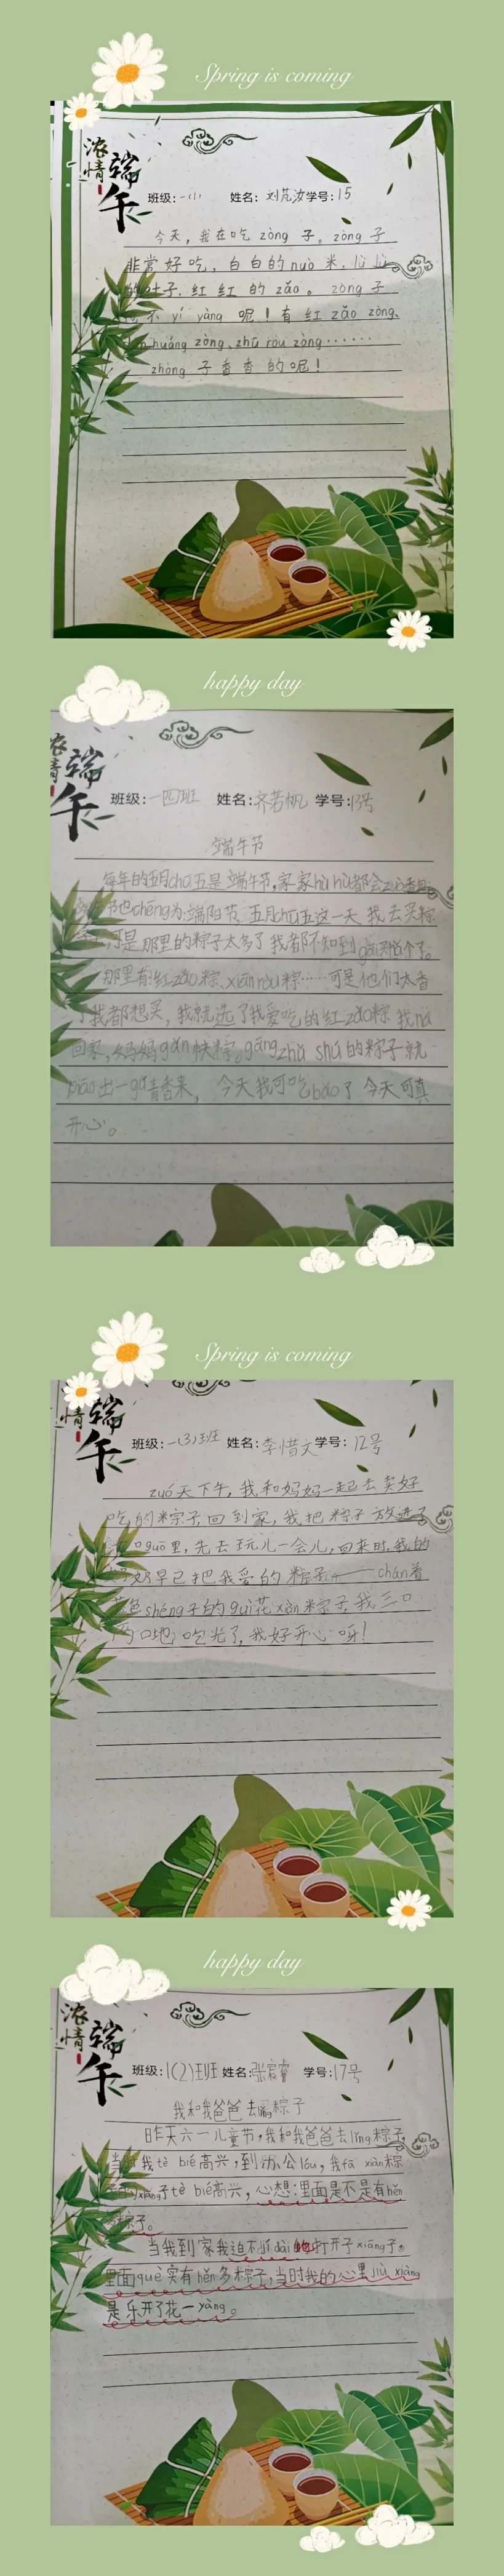 Spring is coming
浓情
端午
班级:一(1) 姓名:刘芃汝学号:15
今天，我在吃 zòng 子。zòng 子
非常好吃，白白的nuò 米，lǜ lǜ
的叶子，红红的 zǎo。zòng 子
不 yí yàng 呢！有红 zǎo zòng、
huáng zòng、zhū ròu zòng……
zhòng 子香香的呢！
happy day
浓情
端午
班级:一四班 姓名:齐若帆 学号:13号
端午节
每年的五月chū五是端午节，家家hù hù都会
节也chēng为端阳节，五月chū五这一天 我去买粽
可是那里的粽子太多了 我都不知到
那里有红zǎo粽、xián ròu粽……可是他们太香
了我都想买，我就选了我爱吃的红zǎo粽 我ná
回家，妈妈gǎn快 粽。gāng zhǔ shú 的粽子就
piāo出一gǔ 香来， 今天我可吃bǎo了 今天可真
开心。
Spring is coming
情
端午
班级:一(3)班 姓名:李惜文学号:12号
zuó天下午，我和妈妈一起去卖好
吃的粽子回到家，我把粽子放进了
guō里，先去玩儿一会儿，回来时，我的
奶早已把我爱的粽子 chán着
色shéng子的guì花xiàn粽子，我三口
两口地吃光了，我好开心呀！
happy day
浓情
端午
班级:1(2)班 姓名:张宸睿 学号:17号
我和我爸爸去lǐng粽子
昨天六一儿童节，我和我爸爸去lǐng粽子，
当 我tè bié高兴，到办公lóu，我fā xiàn粽
xiāng子tè bié高兴，心想：里面是不是有hěn
粽子。
当我到家我迫不jí dài地打开子xiāng子。
里面què实有hěn多粽子，当时我的心里jiù xiàng
是乐开了花一yàng。